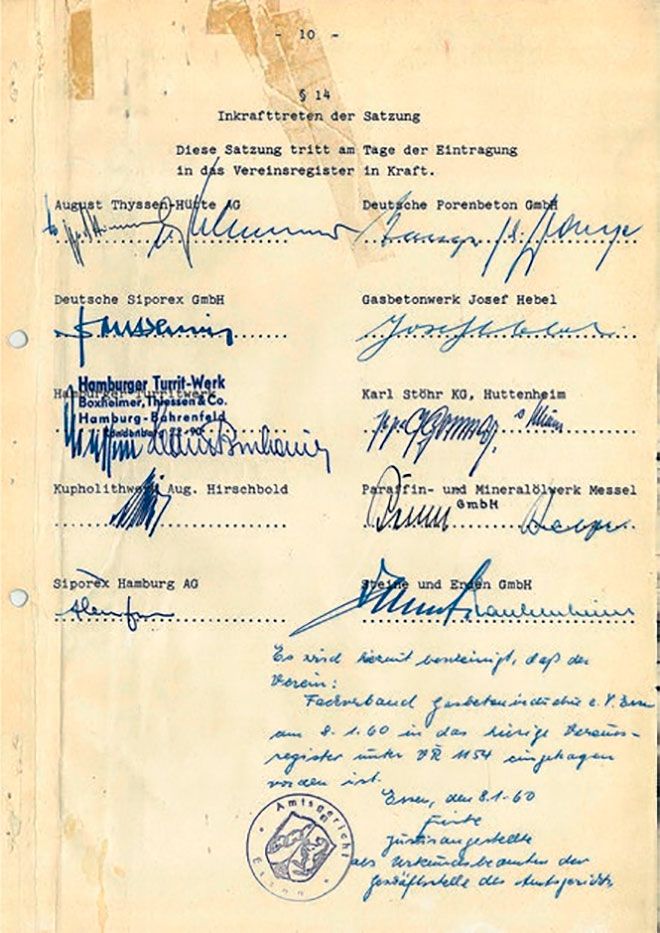 - 10 -
§ 14
Inkrafttreten der Satzung
Diese Satzung tritt am Tage der Eintragung
in das Vereinsregister in Kraft.
August Thyssen-Hütte AG
Deutsche Porenbeton GmbH
Deutsche Siporex GmbH
Gasbetonwerk Josef Hebel
Josef Hebel
Hamburger Turritwerk
Hamburger Turrit-Werk
Boxheimer, Thiessen & Co.
Hamburg-Bahrenfeld
Karl Stöhr KG, Huttenheim
ppa
Kupholithwerk Aug. Hirschbold
Paraffin- und Mineralölwerk Messel
GmbH
Siporex Hamburg AG
Steine und Erden GmbH
Es wird hiermit bescheinigt, daß der
Verein:
Fachverband Gasbetonindustrie e.V. Essen
am 8.1.60 in das hiesige Vereins-
register unter VR 1154 eingetragen
worden ist.
Essen, den 8.1.60
Justizangestellte
als Urkundsbeamter der
Geschäftsstelle des Amtsgerichts
Amtsgericht
Essen